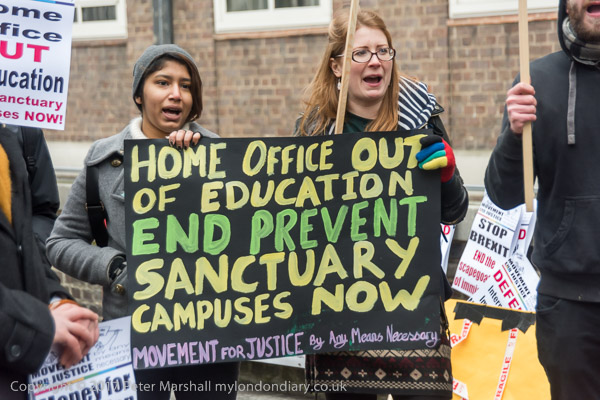 Home
Office
OUT
Education
Sanctuary
Campuses NOW!
HOME OFFICE OUT
OF EDUCATION
END PREVENT
SANCTUARY
CAMPUSES NOW
MOVEMENT FOR JUSTICE By Any Means Necessary
STOP
BREXIT
END the
MOVEMENT
JUSTICE
Money for
FRAGILE
Peter Marshall mylondondiary.co.uk